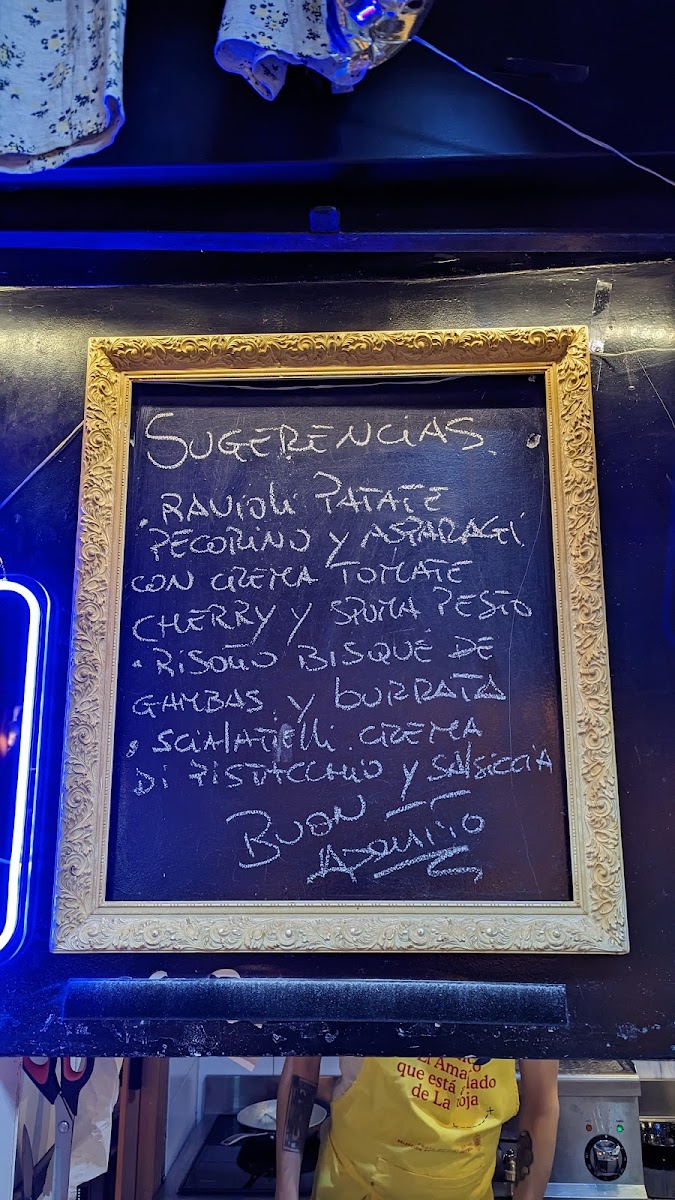 SUGERENCIAS.
. RAVIOLI PATATE
PECORINO y ASPARAGI
CON CREMA TOMATE
CHERRY y SPUMA PESTO
. RISOTTO BISQUE DE
GAMBAS y BURRATA
. SCIALATIELLI CREMA
DI PISTACCHIO y SALSICCIA
BUON
que está lado
de La